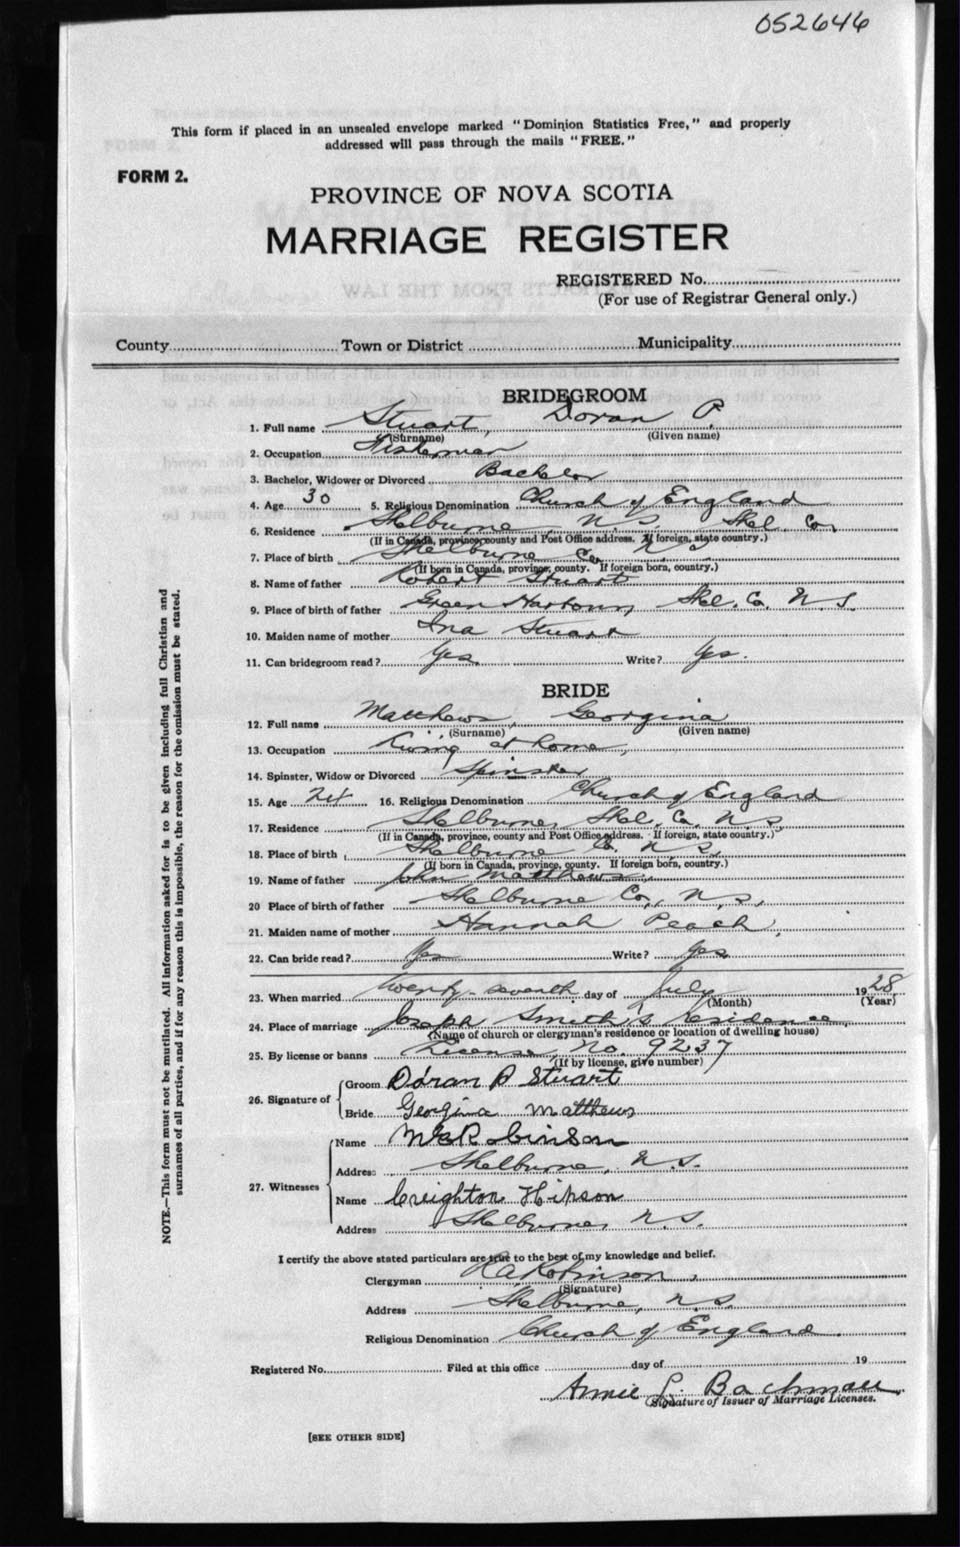 052646
This form if placed in an unsealed envelope marked "Dominion Statistics Free," and properly
addressed will pass through the mails "FREE."
FORM 2.
PROVINCE OF NOVA SCOTIA
MARRIAGE REGISTER
REGISTERED No.
(For use of Registrar General only.)
County Town or District Municipality
BRIDEGROOM
1. Full name Stuart, Doran P.
(Surname) (Given name)
2. Occupation Fisherman
3. Bachelor, Widower or Divorced Bachelor
4. Age 30 5. Religious Denomination Church of England
6. Residence Shelburne, N.S. Shel. Co.
(If in Canada, province, county and Post Office address. If foreign, state country.)
7. Place of birth Shelburne Co. N S
(If born in Canada, province, county. If foreign born, country.)
8. Name of father Robert Stuart
9. Place of birth of father Green Harbour, Shel. Co. N.S.
10. Maiden name of mother Ina Stuart
11. Can bridegroom read? Yes Write? Yes.
BRIDE
12. Full name Matthews, Georgina
(Surname) (Given name)
13. Occupation Living at home,
14. Spinster, Widow or Divorced Spinster
15. Age 16. Religious Denomination Church of England
17. Residence Shelburne, Shel. Co. N.S.
(If in Canada, province, county and Post Office address. If foreign, state country.)
18. Place of birth Shelburne Co. N.S.
(If born in Canada, province, county. If foreign born, country.)
19. Name of father John Matthews.
20 Place of birth of father Shelburne Co., N.S.,
21. Maiden name of mother Hannah Peach,
22. Can bride read? Yes Write? Yes
23. When married twenty-seventh day of July 1928
(Month) (Year)
24. Place of marriage Joseph Smith's residence,
(Name of church or clergyman's residence or location of dwelling house)
25. By license or banns License, No. 9237
(If by license, give number)
26. Signature of Groom Doran P Stuart
Bride Georgina Matthews
27. Witnesses Name Robinson
Address Shelburne, N.S.
Name Creighton Hipson
Address Shelburne, N.S.
I certify the above stated particulars are true to the best of my knowledge and belief.
Clergyman Robinson,
(Signature)
Address Shelburne, N.S.
Religious Denomination Church of England.
Registered No. Filed at this office day of 19
Annie L. Bachman
Signature of Issuer of Marriage Licenses.
[SEE OTHER SIDE]
NOTE.—This form must not be mutilated. All information asked for is to be given including full Christian and
surnames of all parties, and if for any reason this is impossible, the reason for the omission must be stated.